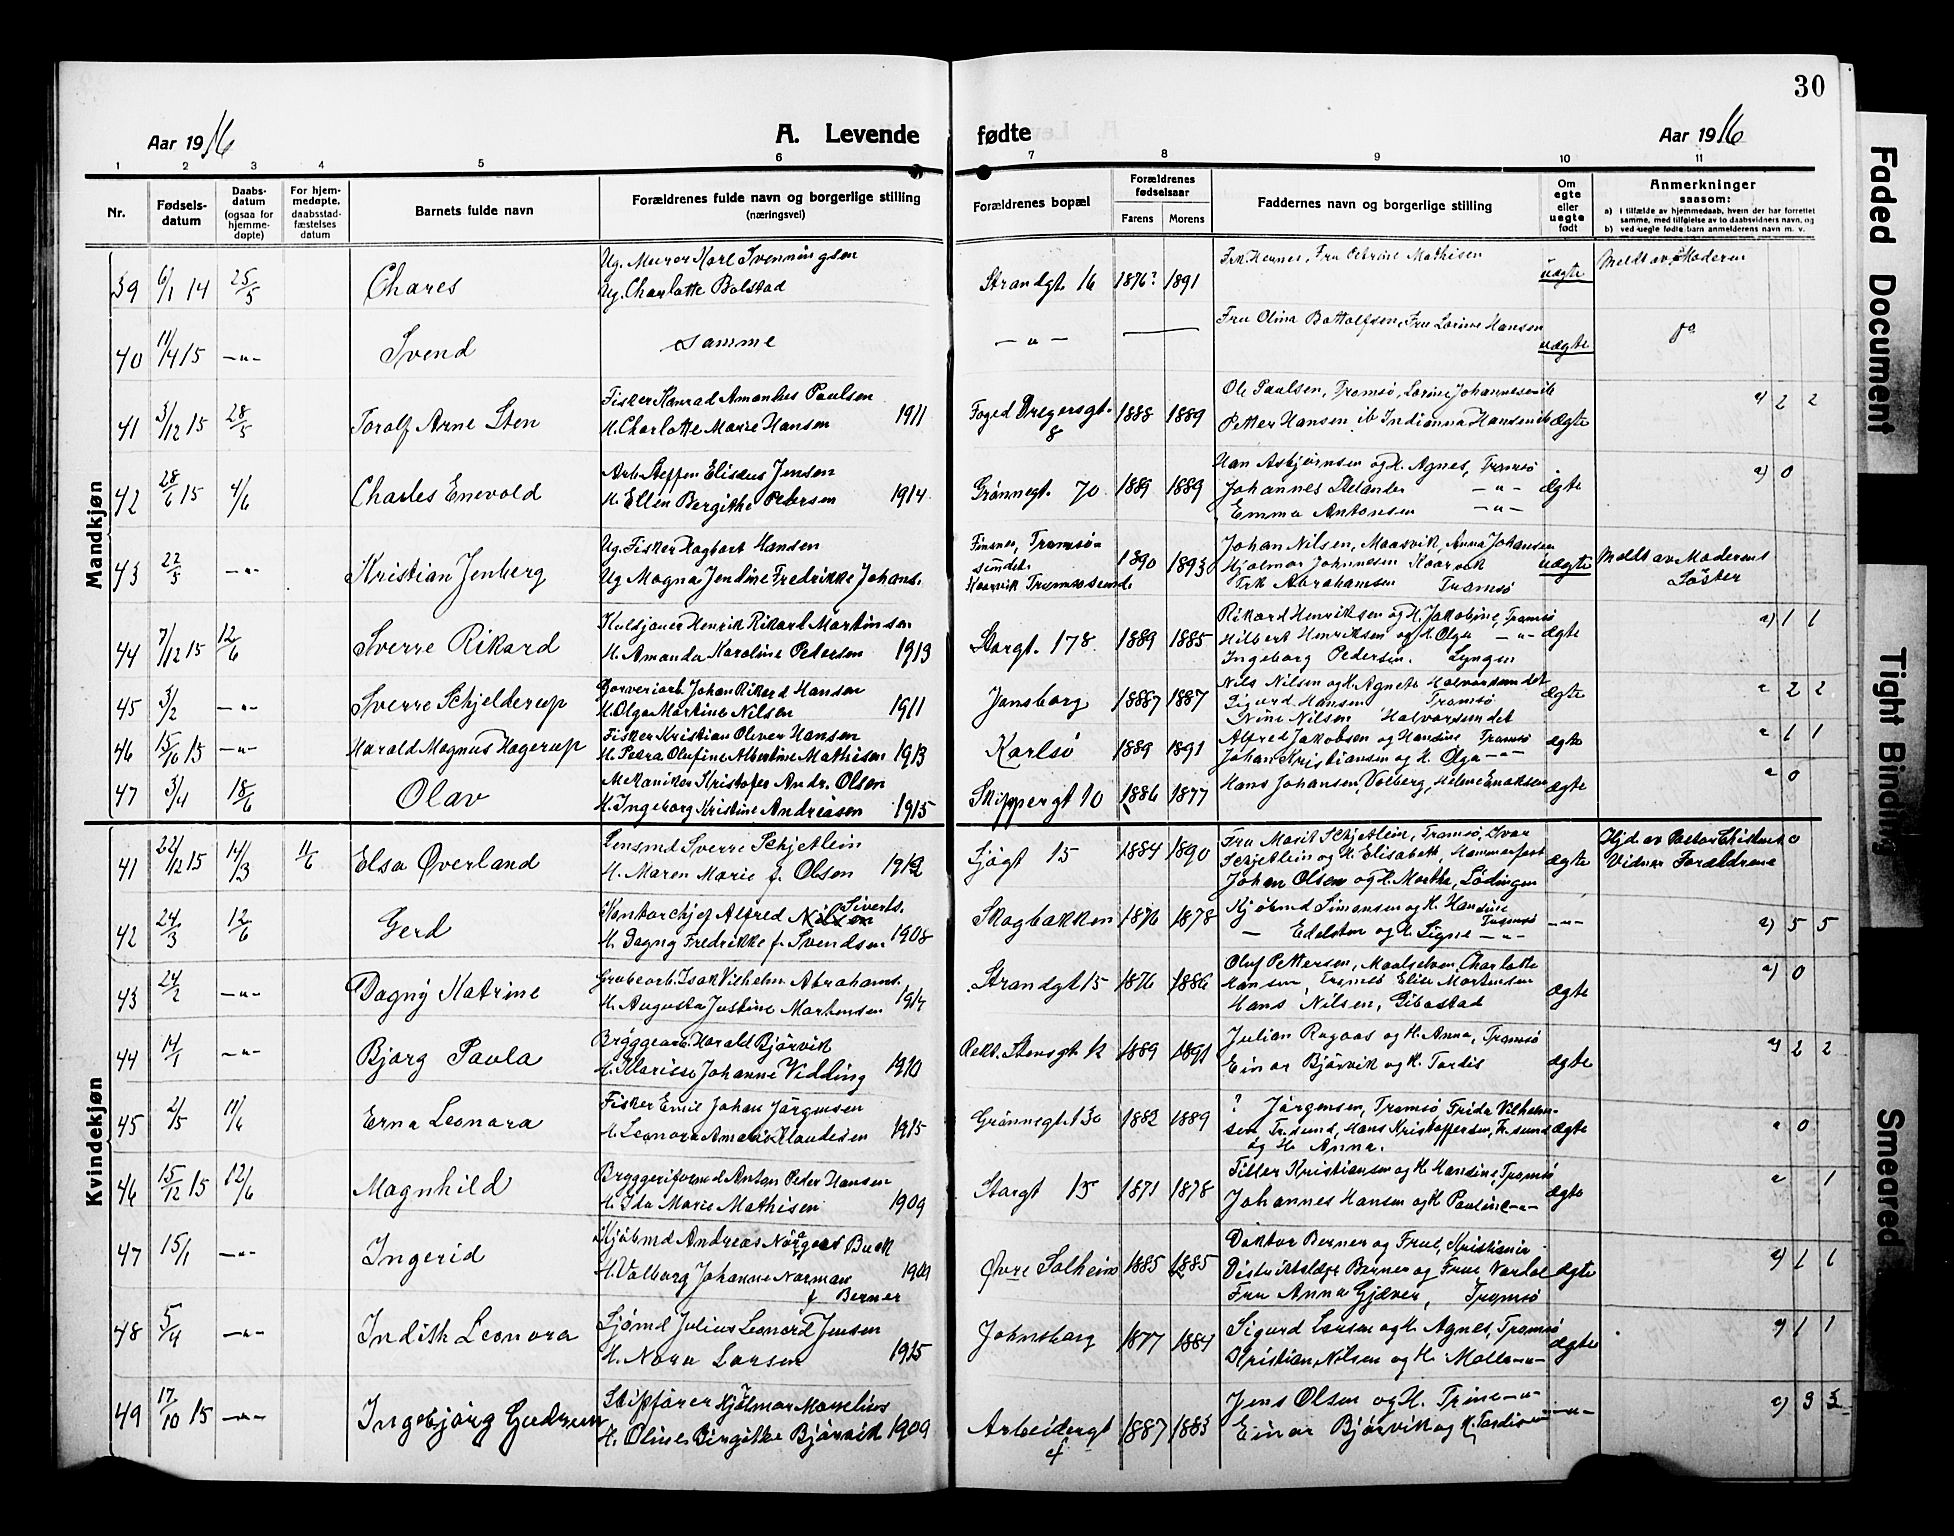 30
Aar 1916
A. Levende
fødte
Aar 1916
1 2 3 4 5 6 7 8 9 10 11
Nr.
Fødsels-
datum
Daabs-
datum
(ogsaa for
hjemme-
døpte)
For hjem-
medøpte,
daabsstad-
fæstelses
datum
Barnets fulde navn
Forældrenes fulde navn og borgerlige stilling
(næringsvei)
Forældrenes bopæl
Forældrenes
fødselsaar
Farens
Morens
Faddernes navn og borgerlige stilling
Om
egte
eller
uegte
født
Anmerkninger
saasom:
a) i tilfælde av hjemmedaab, hvem der har forrettet
samme, med tilføielse av to daabsvidners navn, og
b) ved uegte fødte barn anmelderens navn m. v.
Mandkjøn
Ug. Murer Karl Svenningsen
39 6/1 14 25/5 Chares
Ug. Charlotte Bolstad
Strandgt. 16 1876? 1891
Frk. Hernes, Fru Petrine Mathisen
uægte
Meldt av Moderen
40 11/4 15 -"- Svend
samme
-"-
Fru Olina Bottolfsen, Fru Lorine Hansen
uægte
Do
Fisker Konrad Amandus Paulsen
41 3/12 15 28/5 Toralf Arne Sten
H. Charlotte Marie Hansen 1911
Foged Dregersgt. 8 1888 1889
Ole Paulsen, Tromsø, Lorine Johannesen ib
Petter Hansen ib Indianna Hansen ib
ægte
a) 2 2
Arb. Steffen Elisæus Jensen
42 28/6 15 4/6 Charles Enevold
H. Ellen Bergithe Petersen 1914
Grønnegt. 70 1889 1889
Han Asbjørnsen og H. Agnes, Tromsø
Johannes Stelander -"-
Emma Antonsen -"-
ægte
a) 0
Ug. Fisker Hagbart Hansen
43 22/5 -"- Kristian Jenberg
Ug Magna Jendine Fredrikke Johans.
Finsnes, Tromsø-
sundet.
Kaarvik Tromsøsund 1890 1893
Johan Nilsen, Maasvik, Anna Johansen
Hjalmar Johnnesen Kaarvik
Frk Abrahamsen Tromsø
uægte
Meldt av Moderens
Søster
Kulsjauer Henrik Rikart Martinsen
44 7/12 15 12/6 Sverre Rikard
H. Amanda Karoline Pedersen 1913
Storgt. 178. 1889 1885
Rikard Henriksen og H. Jakobine, Tromsø
Hilbert Henriksen og H. Olga -"-
Ingeborg Pedersen. Lyngen
ægte
a) 1 1
Garveriarb. Johan Rikard Hansen
45 3/2 -"- Sverre Schjelderup
H. Olga Martine Nilsen 1911
Jonsborg 1888? 1887
Nils Nilsen og H. Agnete Halvorsundet
Sigurd Hansen Tromsø
Nine Nilsen Halvorsundet
ægte
" 2 2
Fisker Kristian Oliver Hansen
46 15/10 15 -"- Harald Magnus Hagerup
H. Petra Olufine Albertine Mathisen 1913
Karlsø 1889 1891
Alfred Jakobsen og Hansine Tromsø
Johan Kristiansen og H. Olga -"-
ægte
" 1 1
Mekaniker Kristofer Andr. Olsen
47 3/4 18/6 Olav
H. Ingeborg Kristine Andreasen 1915
Skippergt 10 1886 1877
Hans Johansen, Valberg, Helene Enoksen
ægte
" 0
Kvindekjøn
Lensmd Sverre Schjetlein
41 22/12 15 14/3 11/6 Elsa Øverland
H. Maren Marie f. Olsen 1912
Sjøgt 15 1884 1890
Fru Marit Schjetlein, Tromsø, Ivar
Schjetlein og H. Elisabeth, Hammerfest
Johan Olsen og H. Martha, Lødingen
ægte
Hjd. av Pastor Christens. 0
Vidner Forældrene
Kontorchef Alfred Nilsen Siverts.
42 24/3 12/6 Gerd
H. Dagny Fredrikke f. Svendsen 1908
Skogbakken 1876 1878
Kjøbmd Simonsen og H. Hansine
- Edelsten og H. Signe Tromsø -"-
-"-
a) 5 5
Grubearb. Isak Vilhelm Abrahams.
43 24/2 -"- Dagny Katrine
H. Augusta Justine Mortensen 1914
Strandgt 15 1876 1886
Oluf Pettersen, Maalselven, Charlotte
Hansen, Tromsø Elise Mortensen
Hans Nilsen, Gibostad
ægte
a) 0
Bryggearb. Harald Bjørvik
44 14/1 -"- Bjørg Paula
H. Klarisse Johanne Vidding 1910
Rekt. Stensgt. 12 1889 1891
Julian Rognas og H. Anna, Tromsø
Einar Bjørvik og H. Tordis
ægte
a) 2 2
Fisker Emil Johan Jørgensen
45 2/5 11/6 Erna Leonora
H. Leonora Amalie Klaudesen 1915
Grønnegt. 130 1882 1889
? Jørgensen, Tromsø, Frida Vilhelm-
sen Tr.sund, Hans Kristoffersen, Tr.sund
og H. Anna.
ægte
" 0
Bryggeriformd Anton Peder Hansen
46 15/12 15 12/6 Magnhild
H. Ida Marie Mathisen 1909
Storgt 15 1871 1878
Tiller Kristiansen og H. Hansine, Tromsø
Johannes Hansen og H. Pauline -"-
ægte
" 1
Kjøbmd Andreas Norgaas Buck
47 15/1 -"- Ingerid
H. Valborg Johanne Norman 1909
f Berner
Øvre Solheim 1885 1885
Doktor Berner og Frue, Kristiania
Distriktslæge Berner og Frue Vardø
Fru Anna Gjæver, Tromsø
ægte
a) 1 1
Sjømd Julius Leonard Jensen
48 5/4 -"- Indith Leonora
H. Nora Larsen 1915
Johnsborg 1877 1884
Sigurd Larsen og H. Agnes, Tromsø
Kristian Nilsen og H. Malla -"-
ægte
a) 1 1
Skipfører Hjalmar Mornelius
49 17/10 15 -"- Ingebjørg Gudrun
H. Oline Birgitte Bjørvik 1909
Arbeidergt 4 1887 1883
Jens Olsen og H. Trine -"-
Einar Bjørvik og H. Tordis -"-
-"-
a) 3 3
Faded Document
Tight Binding
Smeared